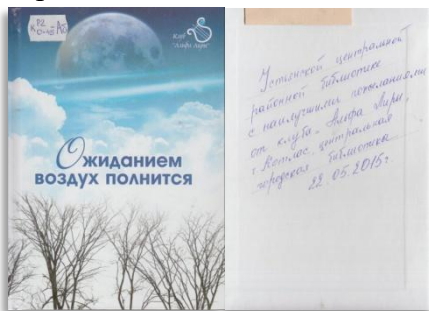 Клуб
"Альфа Лиры"
Ожиданием
воздух полнится
Устьянской центральной
районной библиотеке
с наилучшими пожеланиями
от клуба "Альфа Лиры",
г. Котлас, центральная
городская библиотека
22.05.2015г.